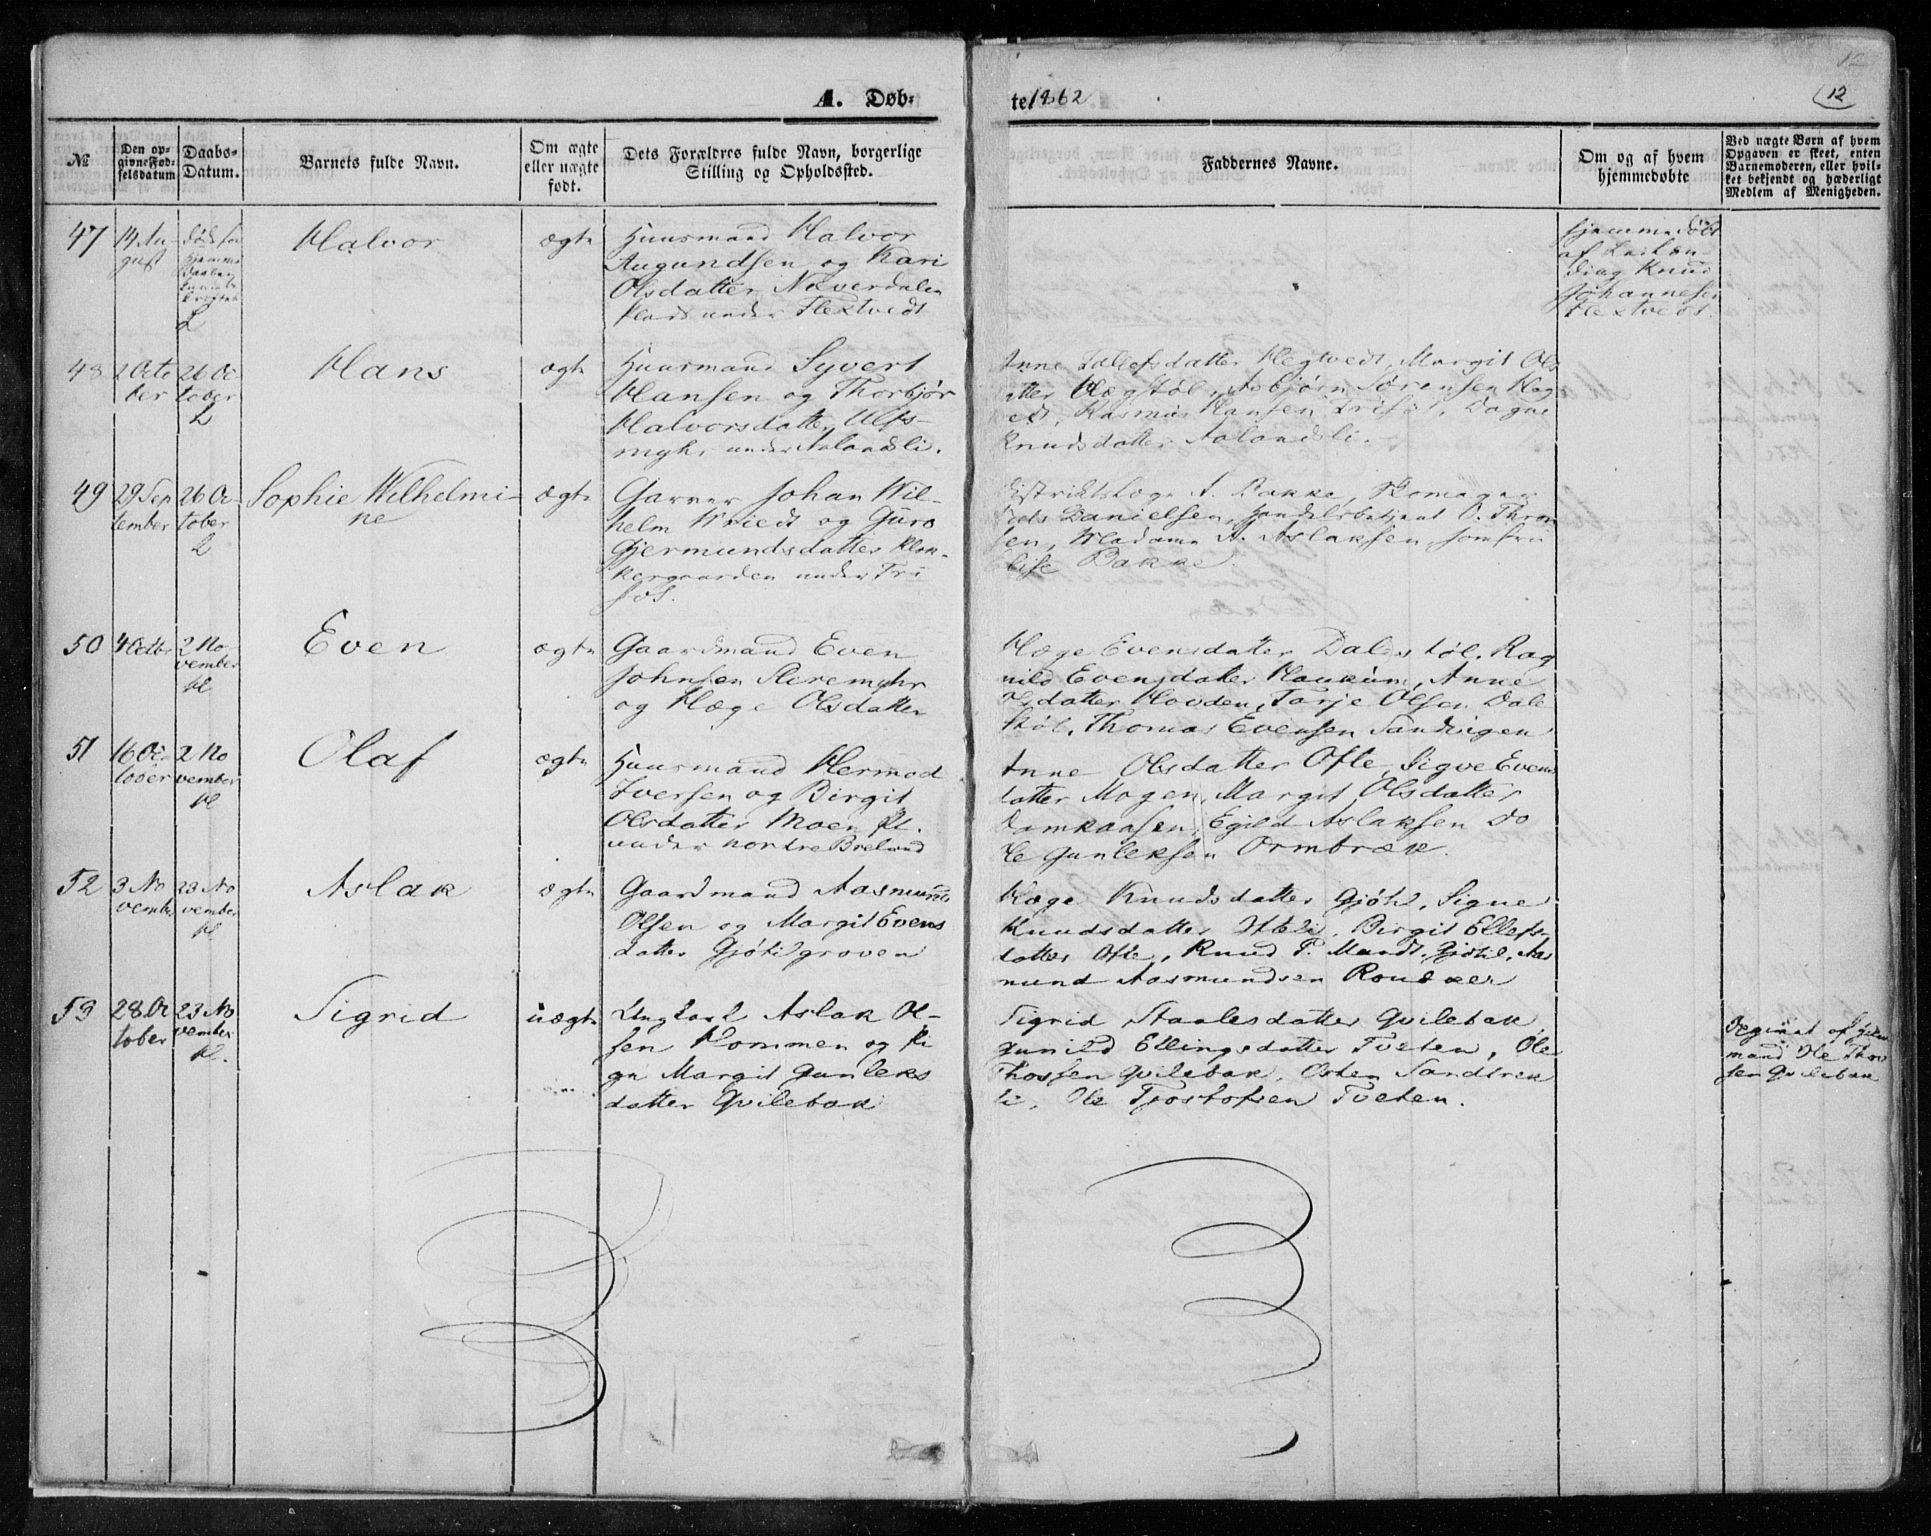 12
A. Døb=
te 1862
12
№
Den op-
givne Fød-
selsdatum
Daabs-
Datum.
Barnets fulde Navn.
Om ægte
eller uægte
født.
Dets Forældres fulde Navn, borgerlige
Stilling og Opholdssted.
Faddernes Navne.
Om og af hvem
hjemmedøbte
Ved uægte Børn af hvem
Opgaven er skeet, enten
Barnemoderen, eller hvil-
ket bekjendt og hæderligt
Medlem af Menigheden.
47
14 Au-
gust
Halvor
ægte
Huusmand Halvor
Augundsen og Kari
Olsdatter
Plads under Flextvedt
hjemmedøbt
af
Knud
Johannesen
Flextvedt.
48
2 Octo
ber
26 Oc
tober
L
Hans
ægte
Huusmand Syvert
Hansen og Thorbjør
Halvorsdatter
under Aalandsli.
Anne Tallefsdatter Hegtvedt, Margit Ols
datter Asbjørn Sørensen Heg
Rasmus Hansen Trisæt, Dagne
Knudsdatter Aalandsli.
49
29 Sep
tember
26 Oc
tober
L
Sophie Wilhelmi-
ne
ægte
Garver Johan Wil-
helm Wriedt og Guro
Gjermundsdatter Klok-
kergaarden under Tri
sæt.
Distriktslæge A. Bakke,
Danielsen, Handelsbetjent O. Thron
sen, Madame A. Aslaksen, Jomfru
Elise Bakke.
50
4 Octbr
2 No
vember
Hl
Even
ægte
Gaardmand Even
Johnsen
og Hæge Olsdatter
Hæge Evensdatter Dalestøl, Rag
nild Evensdatter Haukum, Anne
Olsdatter Hovden, Tarje Olsen Dale
støl, Thomas Evensen Sandvigen
51
16 Oc
tober
2 No
vember
Hl
Olaf
ægte
Huusmand Hermod
Iversen og Birgit
Olsdatter Moen Pl.
under nordre Breland
Anne Olsdatter Ofte, Sigve Evens
datter Mogen, Margit Olsdatter
Egild Aslaksen Do
Ole Gunleksen Ormbræk.
52
3 No
vember
23 No
vember
Hl
Aslak
ægte
Gaardmand Aasmund
Olsen og Margit Evens
datter Gjøtilgroven
Hæge Knudsdatter Gjøtil, Signe
Knudsdatter Birgit Ellefs-
datter Ofte, Knud P. Mandt, Gjøtil, Aas
mund Aasmundsen
53
28 Oc
tober
23 No
vember
Hl.
Sigrid
uægte
Ungkarl Aslak Ol-
sen Hommen og Pi
ge Margit Gunleks
datter Qvilebak
Sigrid Staalesdatter Qvilebak,
Gunild Ellingsdatter Tveten, Ole
Thorsen Qvilebak, Osten Sandbrek
li, Ole Tjostofsen Tveten.
Begivet af Huus
mand Ole Thor
sen Qvilebak